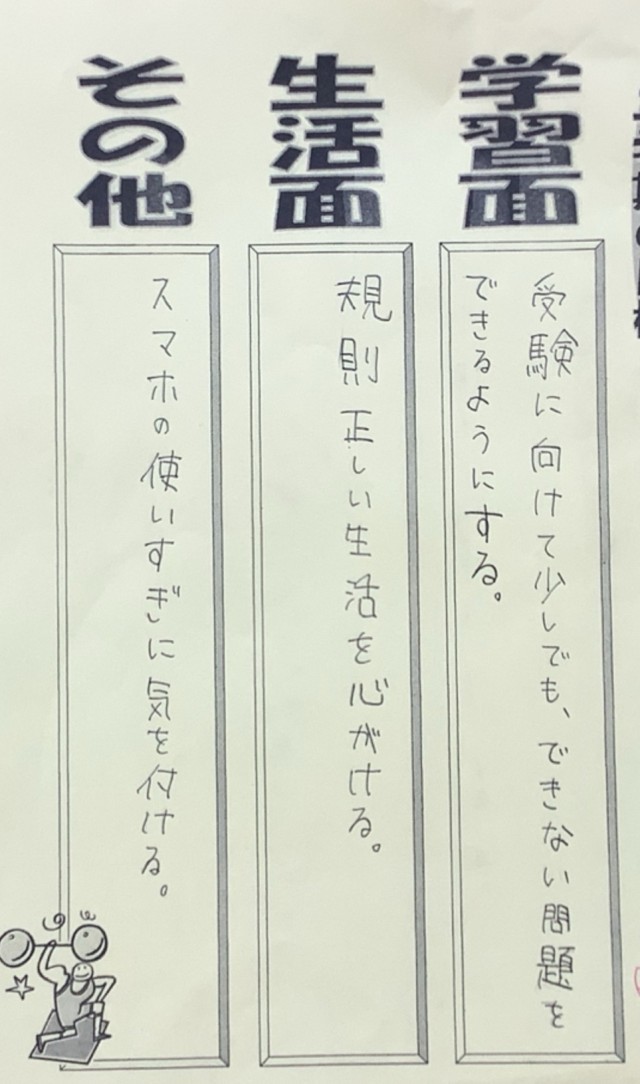 学習面
受験に向けて少しでも、できない問題を
できるようにする。
生活面
規則正しい生活を心がける。
その他
スマホの使いすぎに気を付ける。